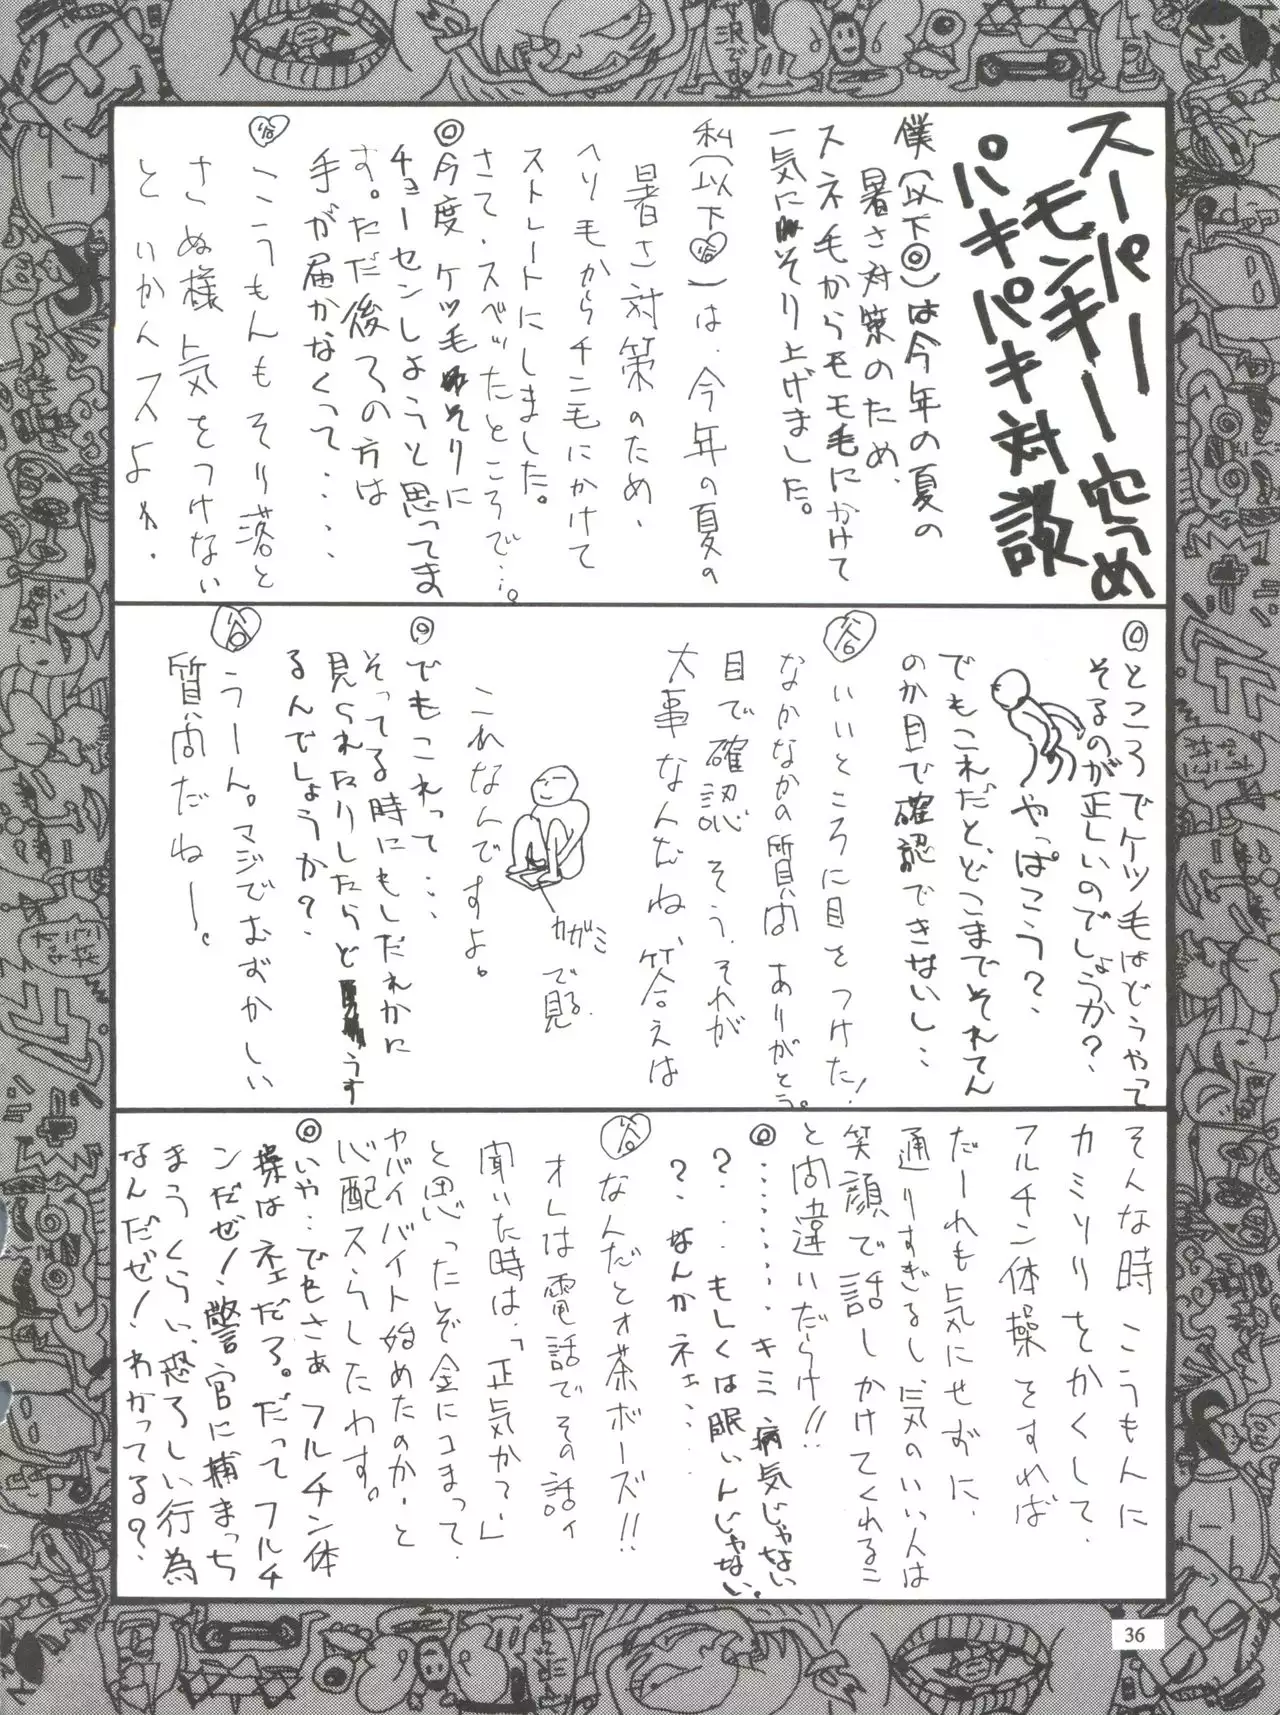 スーパーモンキー穴うめ
パキパキ対談
僕（以下◎）は今年の夏の
暑さ対策のため、
スネ毛からモモ毛にかけて
一気にそり上げました。
私（以下谷）は、今年の夏の
暑さ対策のため、
ヘソ毛からチン毛にかけて
ストレートにしました。
さて、スベッたところで…。
◎今度ケツ毛そりに
チョーセンしようと思ってま
す。ただ後ろの方は
手が届かなくって・・・・
谷 こうもんもそり落と
さぬ様 気をつけない
と いかんスよォ、
◎ところでケツ毛はどうやって
そるのが正しいのでしょうか？
やっぱこう？、
でもこれだと、どこまでそれてん
のか目で確認できないし…
谷 いいところに目をつけた！
なかなかの質問 ありがとう。
目で確認 そう、それが
大事なんだね、答えは
カガミで見る
これなんですよ。
◎でもこれって…
そってる時にもしだれかに
見られたりしたらどうす
るんでしょうか？
谷 うーん。マジでむずかしい
質問だねー。
そんな時 こうもんに
カミソリをかくして、
フルチン体操をすれば
だーれも気にせずに、
通りすぎるし、気のいい人は
笑顔で話しかけてくれるこ
と間違いだらけ!!
◎・・・・・・・キミ病気じゃない
？・・もしくは眠いんじゃない
？、なんかネェ・・・
谷 なんだとォ茶ボーズ!!
オレは電話でその話ィ
聞いた時は、「正気か？」
と思ったぞ 金にコまって
ヤバイバイト始めたのか、と
心配スらしたわす。
◎いや…でもさぁ フルチン体
操はネェだろ。だってフルチ
ンだぜ！警官に捕まっち
まうくらい、恐ろしい行為
なんだぜ！わかってる？、
36